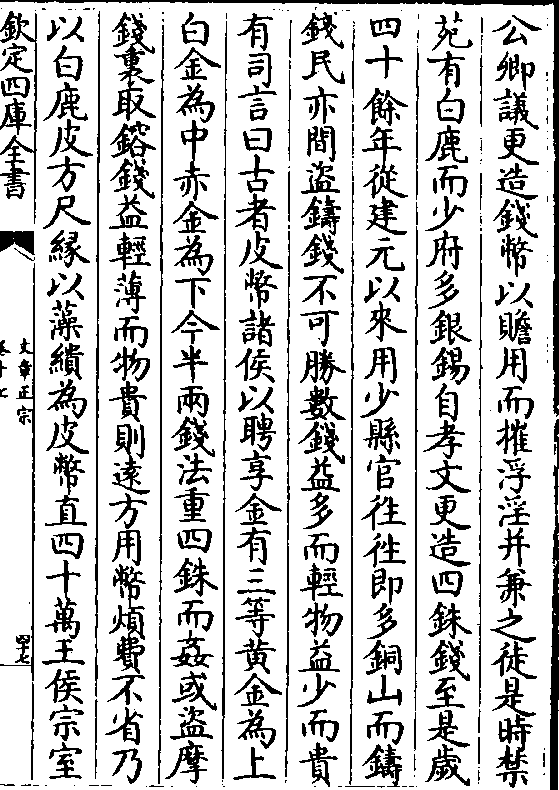 公卿議更造錢幣以贍用而摧浮淫并兼之徒是時禁
苑有白鹿而少府多銀錫自孝文更造四銖錢至是歲
四十餘年從建元以來用少縣官徃徃即多銅山而鑄
錢民亦間盜鑄錢不可勝數錢益多而輕物益少而貴
有司言曰古者皮幣諸侯以聘享金有三等黄金為上
白金為中赤金為下今半兩錢法重四銖而姦或盜摩
錢裏取鎔錢益輕薄而物貴則逺方用幣煩費不省乃
以白鹿皮方尺緣以藻繢為皮幣直四十萬王侯宗室
欽定四庫全書
文章正宗
卷十七
四十七